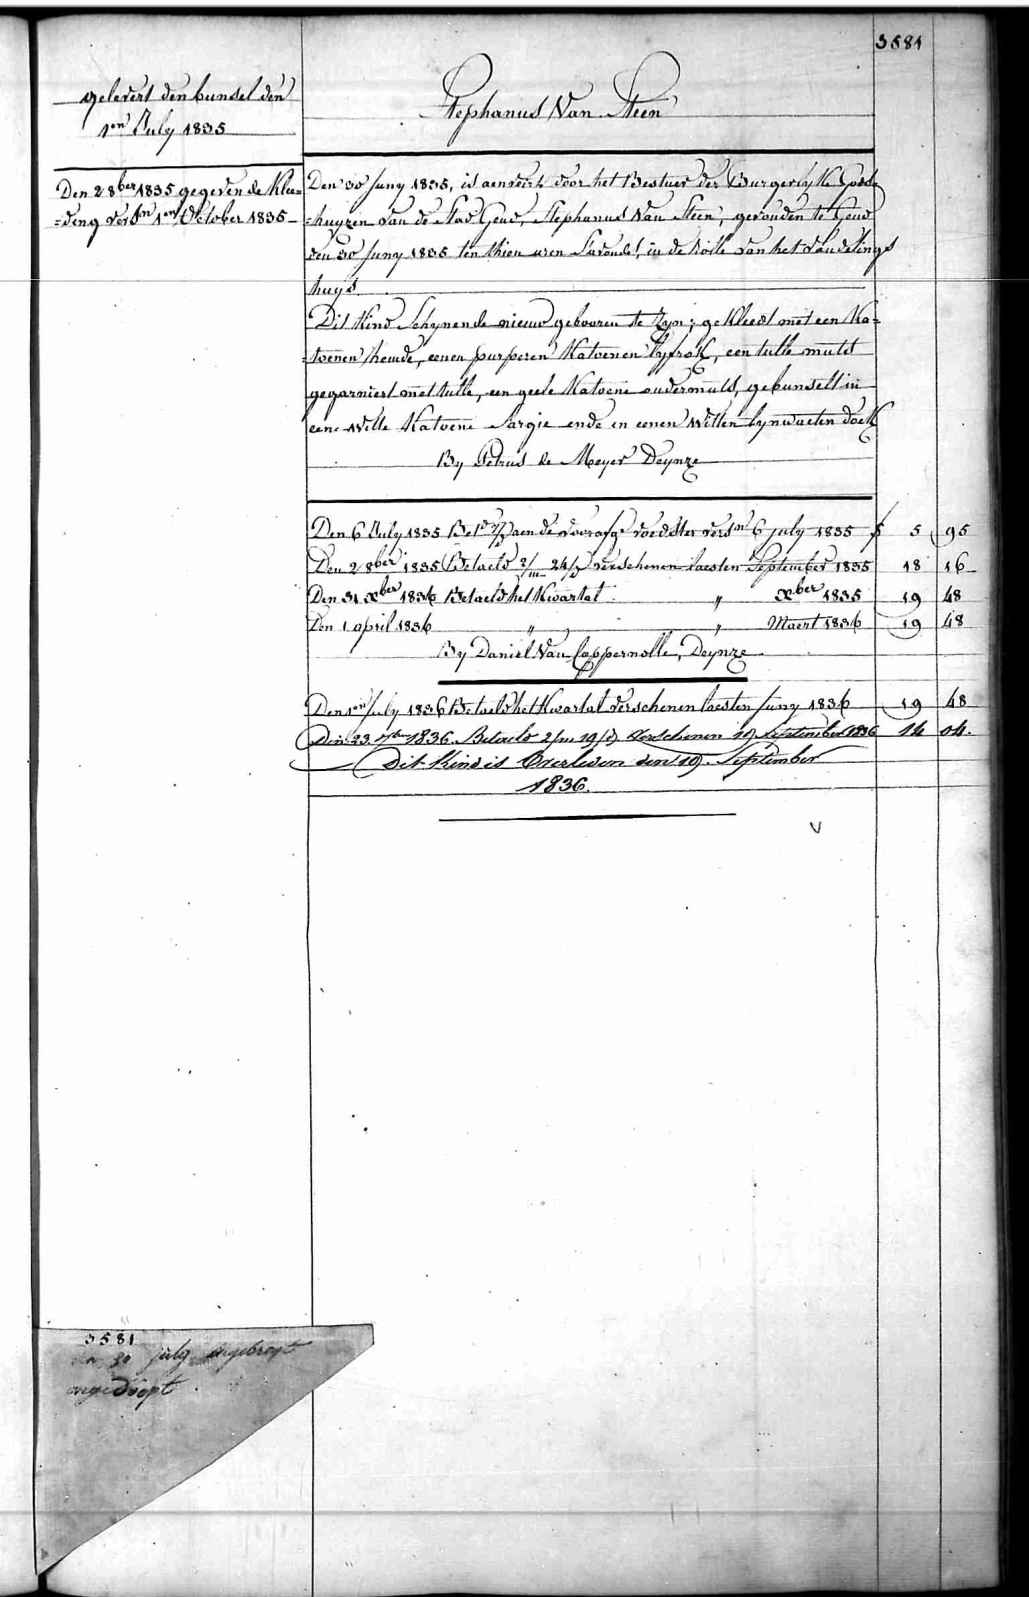 3581
gelevert den bunsel den
1en July 1835
Stephanus Van Steen
Den 2 8ber 1835 gegeven de Klee=
=ding vers^n 1en October 1835
Den 30 Juny 1835, is aenveirt door het Bestuer der Burgerlyke Gods
=huyzen van de Stad Gend, Stephanus Van Steen, gevonden te Gend
den 30 Juny 1835 ten thien uren s'avonds, in de Rolle van het vondelings
huys
Dit Kind Schynende nieuw gebooren te Zyn; gekleed met een Ka=
=toenen hemde, eenen purperen Katoenen lyfrok, een tulle muts
gegarniert met tulle, een geele Katoene ondermuts, gebunselt in
eene Witte Katoene Sargie ende in eenen Witten lynwaeten doek
By Petrus de Meyer Deynze
Den 6 July 1835 aen de voedster vers^n 6 july 1835 f 5 95
Den 2 8ber 1835 Betaeld 2/m 24/d verschenen laesten September 1835 18 16
Den 31 Xber 1836 Betaeld het Kwartal " Xber 1835 19 48
Den 1 april 1836 " " " Maert 1836 19 48
By Daniel Van Coppernolle, Deynze
Den 1en July 1836 Betaeld het Kwartal verschenen laesten Juny 1836 19 48
Den 23 7ber 1836. Betaeld 2/m 19/d Verschenen 19 September 1836 14 04.
Dit Kind is Overleden den 19 September
1836.
3581
30 july